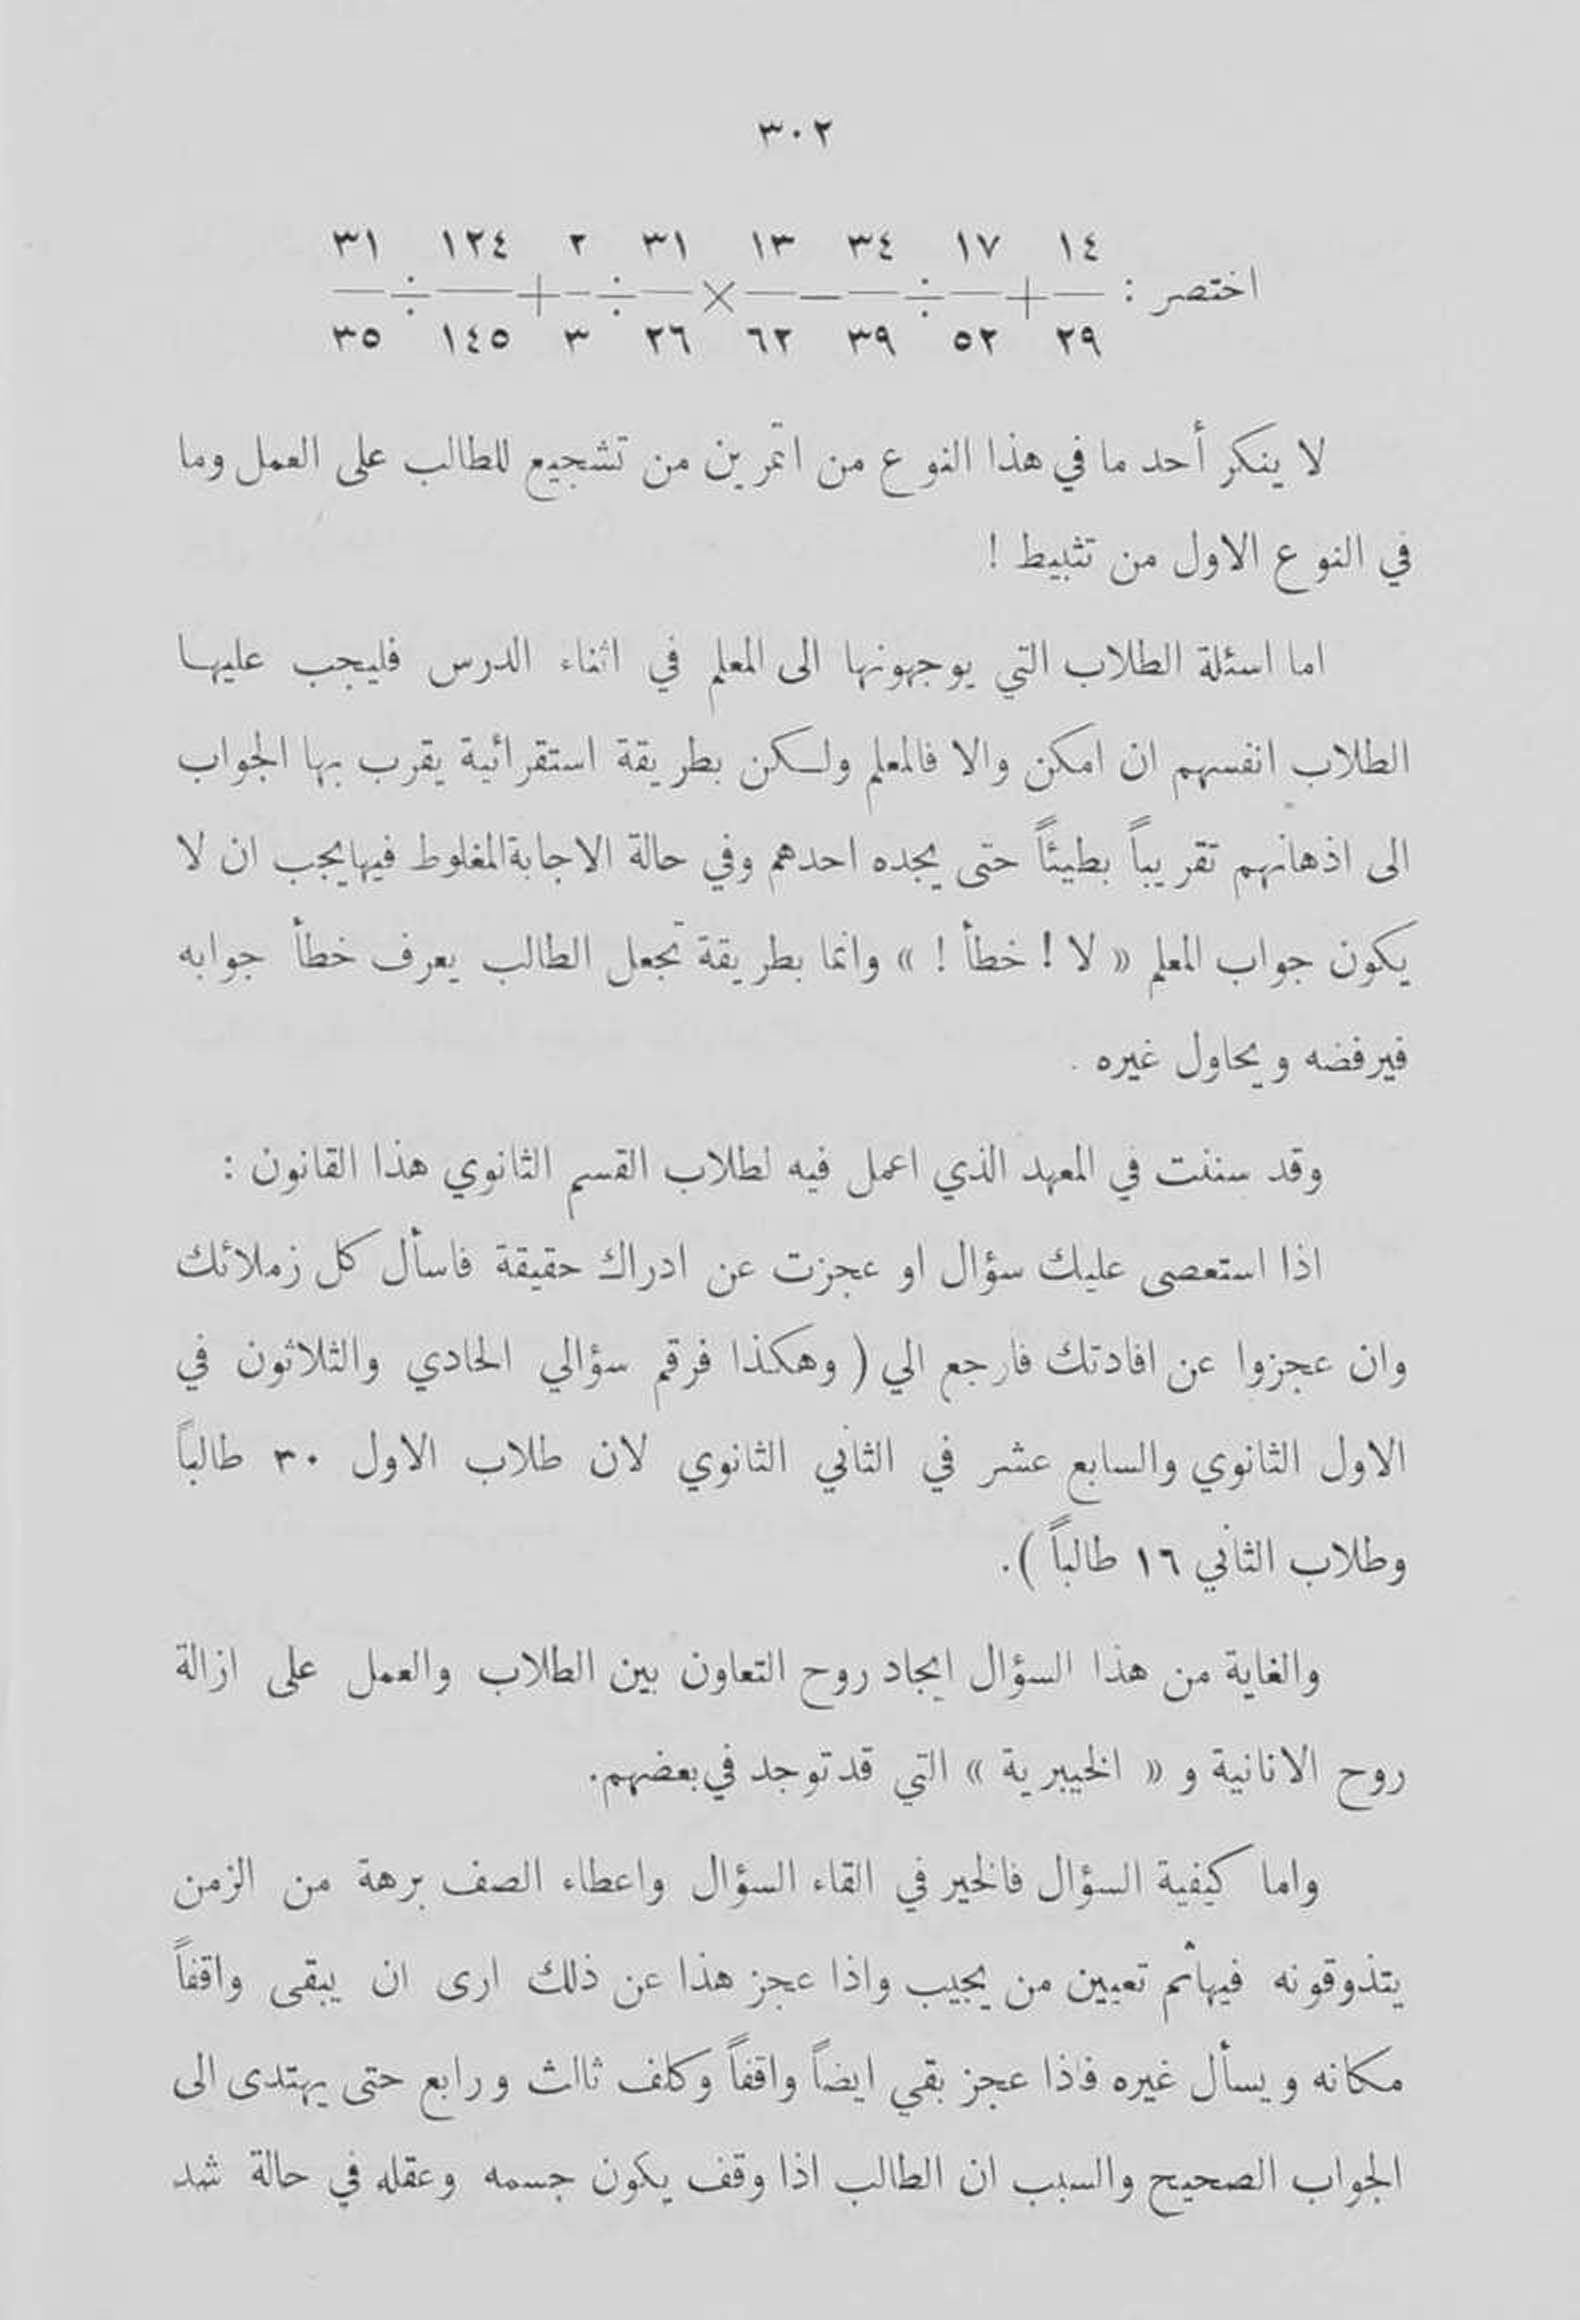 ٣٠٢
اختصر : ١٤/٢٩ + ١٧/٥٢ ÷ ٣٤/٣٩ — ١٣/٦٢ × ٣١/٢٦ ÷ ٢/٣ + ١٢٤/١٤٥ ÷ ٣١/٣٥
لا ينكر أحد ما في هذا النوع من التمرين من تشجيع للطالب على العمل وما
في النوع الاول من تثبيط !
اما اسئلة الطلاب التي يوجهونها الى المعلم في اثناء الدرس فليجب عليها
الطلاب انفسهم ان امكن والا فالمعلم ولكن بطريقة استقرائية يقرب بها الجواب
الى اذهانهم تقريباً بطيئاً حتى يجده احدهم وفي حالة الاجابة المغلوط فيها يجب ان لا
يكون جواب المعلم « لا ! خطأ ! » وانما بطريقة تجعل الطالب يعرف خطأ جوابه
فيرفضه ويحاول غيره .
وقد سننت في المعهد الذي اعمل فيه لطلاب القسم الثانوي هذا القانون :
اذا استعصى عليك سؤال او عجزت عن ادراك حقيقة فاسأل كل زملائك
وان عجزوا عن افادتك فارجع الي ( وهكذا فرقم سؤالي الحادي والثلاثون في
الاول الثانوي والسابع عشر في الثاني الثانوي لان طلاب الاول ٣٠ طالباً
وطلاب الثاني ١٦ طالباً ).
والغاية من هذا السؤال ايجاد روح التعاون بين الطلاب والعمل على ازالة
روح الانانية و « الخيبرية » التي قد توجد في بعضهم.
واما كيفية السؤال فالخير في القاء السؤال واعطاء الصف برهة من الزمن
يتذوقونه فيها ثم تعيين من يجيب واذا عجز هذا عن ذلك ارى ان يبقى واقفاً
مكانه ويسأل غيره فاذا عجز بقي ايضاً واقفاً وكلف ثالث ورابع حتى يهتدى الى
الجواب الصحيح والسبب ان الطالب اذا وقف يكون جسمه وعقله في حالة شد